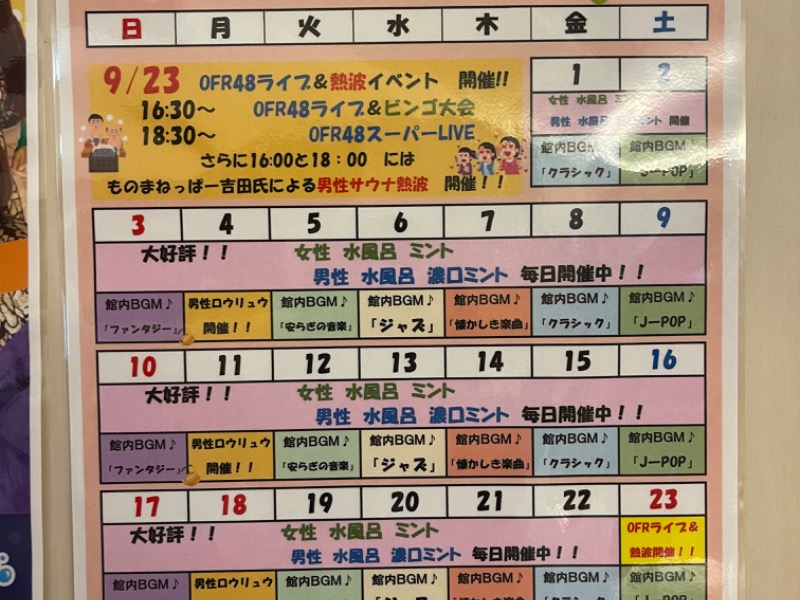 日 月 火 水 木 金 土
9/23 OFR48ライブ&熱波イベント 開催!!
16:30～ OFR48ライブ&ビンゴ大会
18:30～ OFR48スーパーLIVE
さらに16:00と18：00 には
ものまねっぱー吉田氏による男性サウナ熱波 開催！！
1 2
女性 水風呂 ミ
男性 水風呂 ント 開催
館内BGM♪ 館内BGM♪
「クラシック」 「J-POP」
3 4 5 6 7 8 9
大好評！！ 女性 水風呂 ミント
男性 水風呂 濃口ミント 毎日開催中！！
館内BGM♪ 男性ロウリュウ 館内BGM♪ 館内BGM♪ 館内BGM♪ 館内BGM♪ 館内BGM♪
「ファンタジー」 開催！！ 「安らぎの音楽」 「ジャズ」 「懐かしき楽曲」 「クラシック」 「J-POP」
10 11 12 13 14 15 16
大好評！！ 女性 水風呂 ミント
男性 水風呂 濃口ミント 毎日開催中！！
館内BGM♪ 男性ロウリュウ 館内BGM♪ 館内BGM♪ 館内BGM♪ 館内BGM♪ 館内BGM♪
「ファンタジー」 開催！！ 「安らぎの音楽」 「ジャズ」 「懐かしき楽曲」 「クラシック」 「J-POP」
17 18 19 20 21 22 23
大好評！！ 女性 水風呂 ミント OFRライブ&
男性 水風呂 濃口ミント 毎日開催中！！ 熱波開催！！
館内BGM♪ 男性ロウリュウ 館内BGM♪ 館内BGM♪ 館内BGM♪ 館内BGM♪ 館内BGM♪